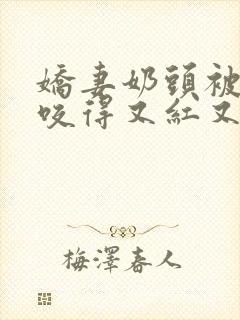 嬌妻奶頭被
咬得又紅又
梅澤春人